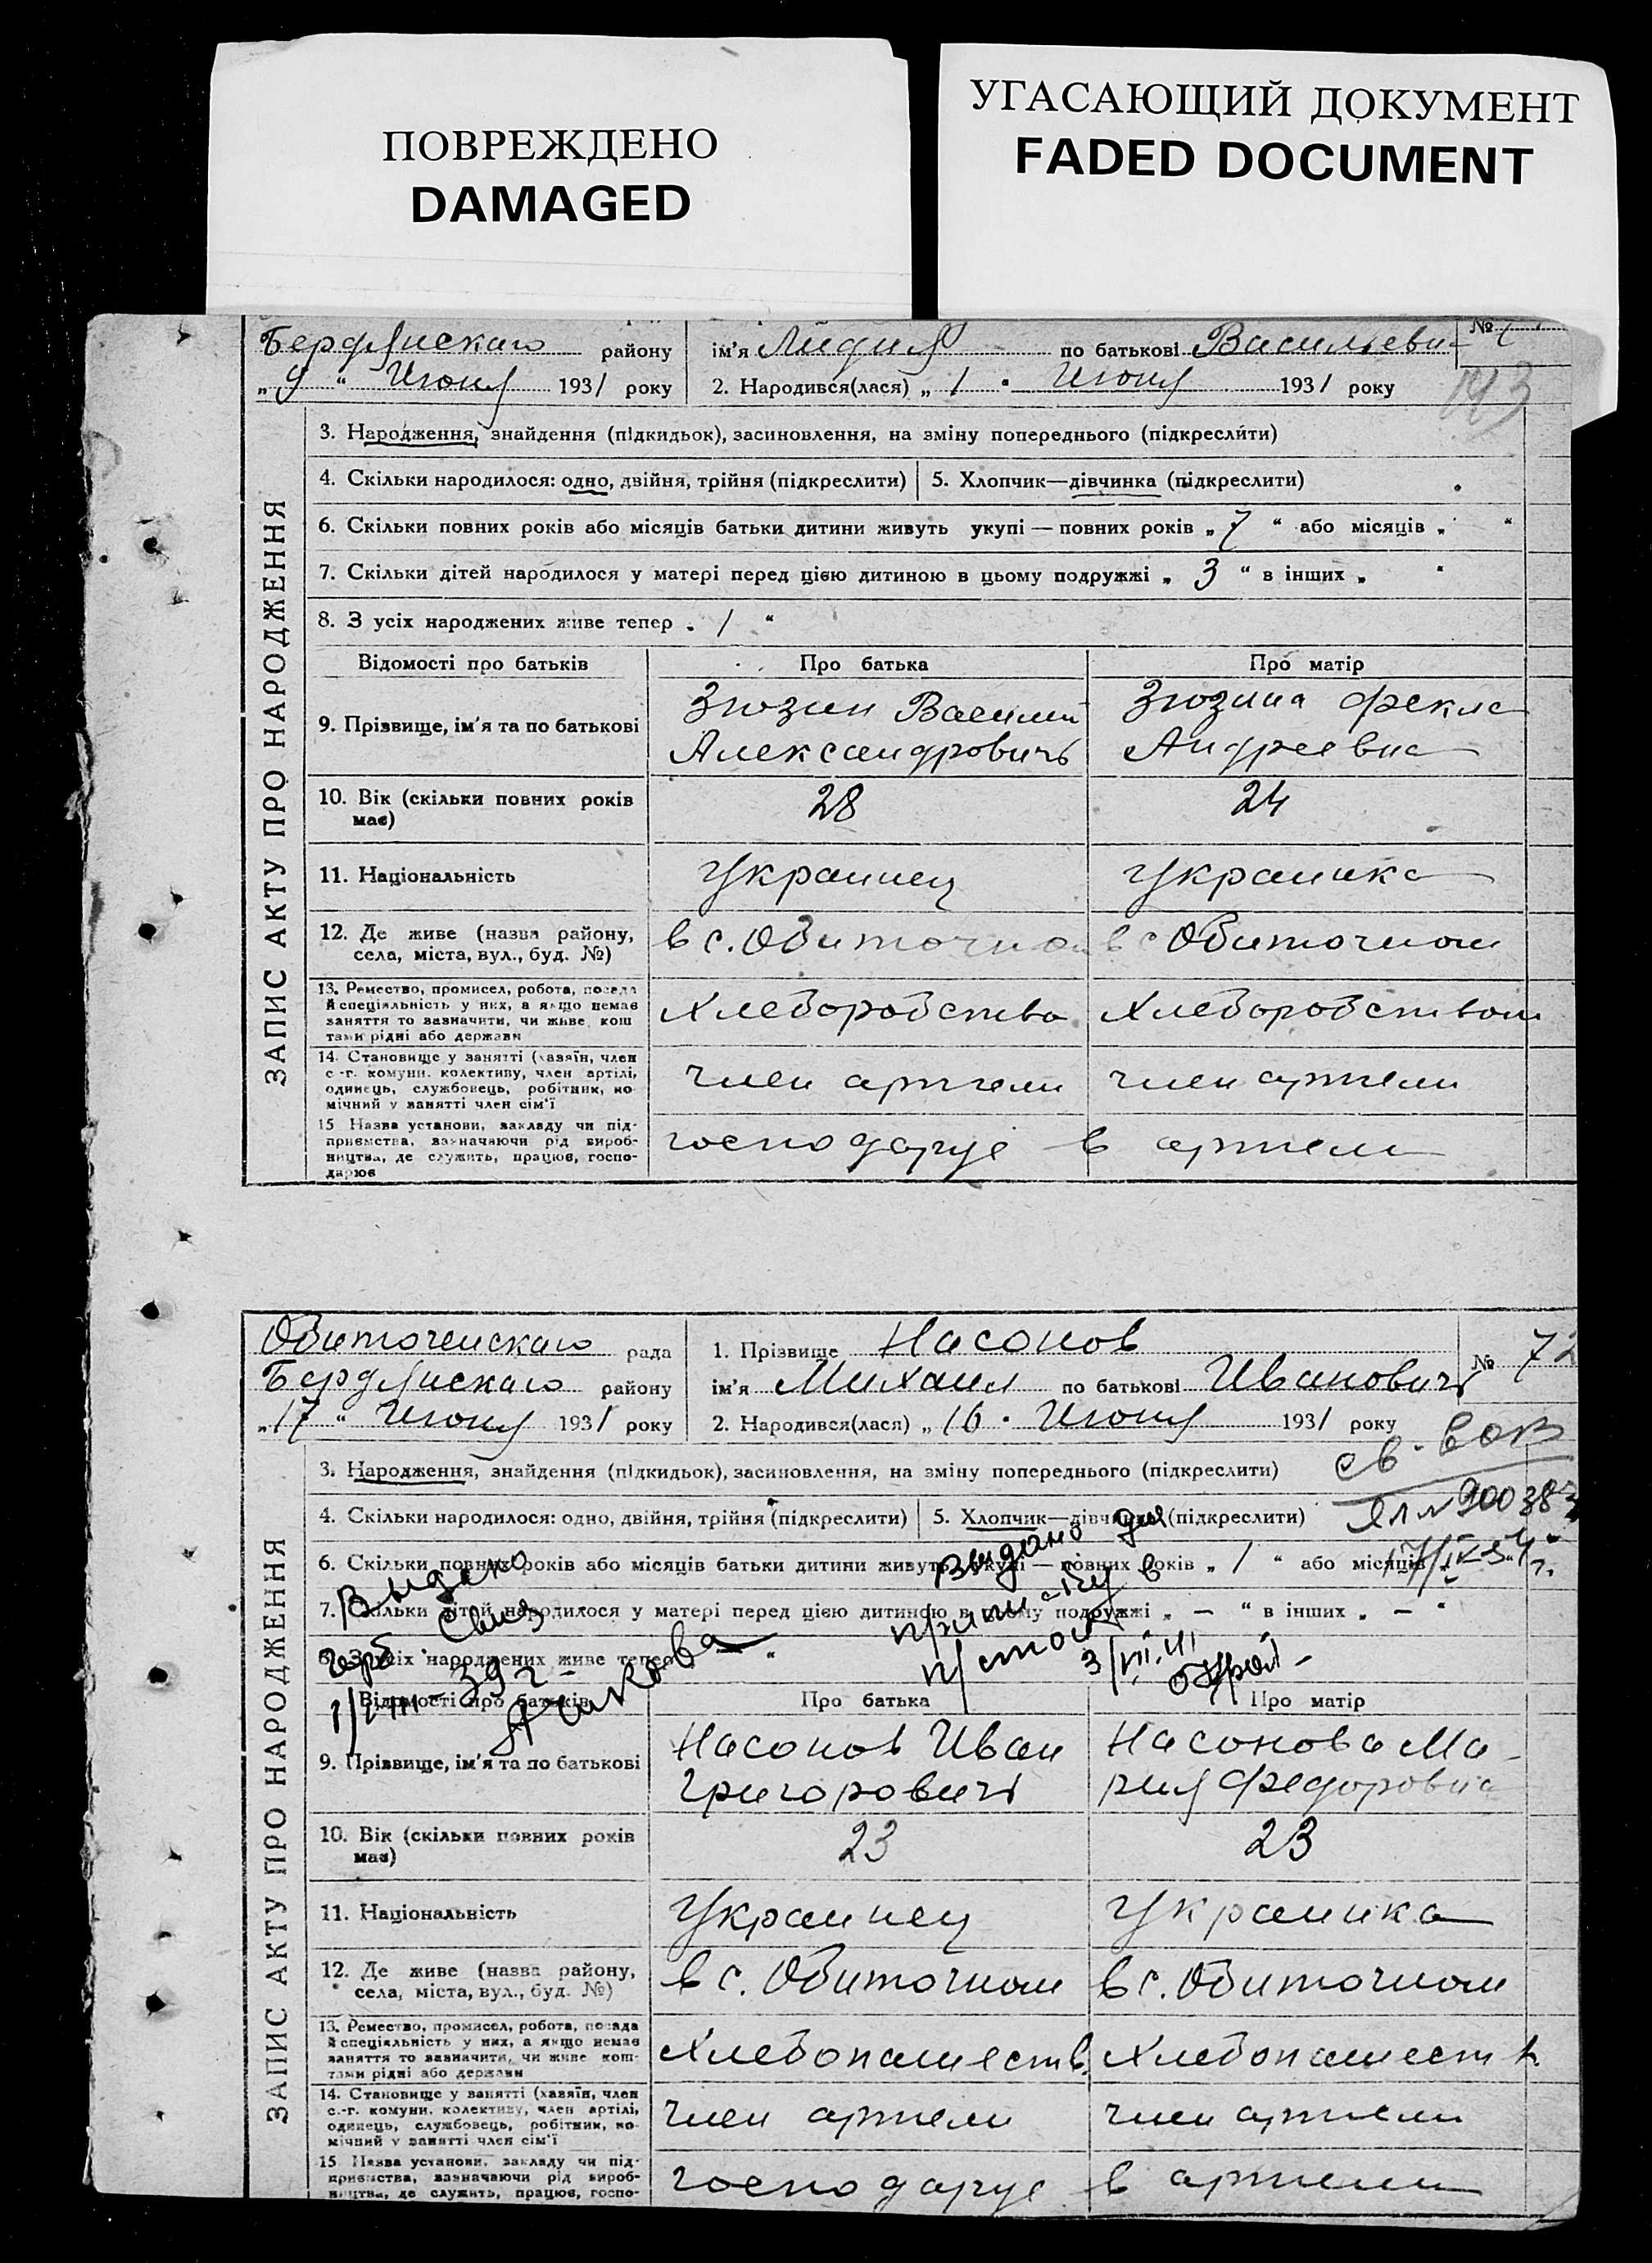 ПОВРЕЖДЕНО
DAMAGED
УГАСАЮЩИЙ ДОКУМЕНТ
FADED DOCUMENT
ЗАПИС АКТУ ПРО НАРОДЖЕННЯ
Бердянскаго району ім'я Лидия по батькові Васильевн №
„9“ Июня 1931 року 2. Народився(лася) „1“ Июня 1931 року
143
3. Народження, знайдення (підкидьок), засиновлення, на зміну попереднього (підкреслити)
4. Скільки народилося: одно, двійня, трійня (підкреслити) 5. Хлопчик—дівчинка (підкреслити)
6. Скільки повних років або місяців батьки дитини живуть укупі — повних років „7“ або місяців „ “
7. Скільки дітей народилося у матері перед цією дитиною в цьому подружжі „3“ в інших „ “
8. З усіх народжених живе тепер „1“
Відомості про батьків Про батька Про матір
9. Прізвище, ім'я та по батькові Зюзин Василий Зюзина Фекла
Александровичъ Андреевна
10. Вік (скільки повних років має) 28 24
11. Національність Украинец Украинка
12. Де живе (назва району, села, міста, вул., буд. №) в с. Обиточном в с Обиточном
13. Ремество, промисел, робота, посада й спеціяльність у них, а якщо немає заняття то зазначити, чи живе коштами рідні або держави Хлеборобство Хлеборобством
14. Становище у занятті (хазяїн, член с.-г. комуни, колективу, член артілі, одинець, службовець, робітник, помічний у занятті член сім'ї член артели член артели
15 Назва установи, закладу чи підприємства, зазначаючи рід виробництва, де служить, працює, господарює господарує в артели
ЗАПИС АКТУ ПРО НАРОДЖЕННЯ
Обиточенскаго рада 1. Прізвище Насонов № 72
Бердянскаго району ім'я Михаил по батькові Ивановичъ
„17“ Июня 1931 року 2. Народився(лася) „16“ Июня 1931 року
3. Народження, знайдення (підкидьок), засиновлення, на зміну попереднього (підкреслити)
4. Скільки народилося: одно, двійня, трійня (підкреслити) 5. Хлопчик—дівчинка (підкреслити)
900383
6. Скільки повних років або місяців батьки дитини живуть укупі — повних років „1“ або місяців
7. Скільки дітей народилося у матері перед цією дитиною в цьому подружжі „—“ в інших „—“
8. З усіх народжених живе тепер „—“
Выдано
Выдано для
Відомості про батьків Про батька Про матір
9. Прізвище, ім'я та по батькові Насонов Иван Насонова Ма-
Григоровичъ рия Федоровна
10. Вік (скільки повних років має) 23 23
11. Національність Украинец Украинка
12. Де живе (назва району, села, міста, вул., буд. №) в с. Обиточном в с. Обиточном
13. Ремество, промисел, робота, посада й спеціяльність у них, а якщо немає заняття то зазначити, чи живе коштами рідні або держави Хлебопашеств. Хлебопашеств
14. Становище у занятті (хазяїн, член с.-г. комуни, колективу, член артілі, одинець, службовець, робітник, помічний у занятті член сім'ї член артели член артели
15 Назва установи, закладу чи підприємства, зазначаючи рід виробництва, де служить, працює, госпо- господарує в артели